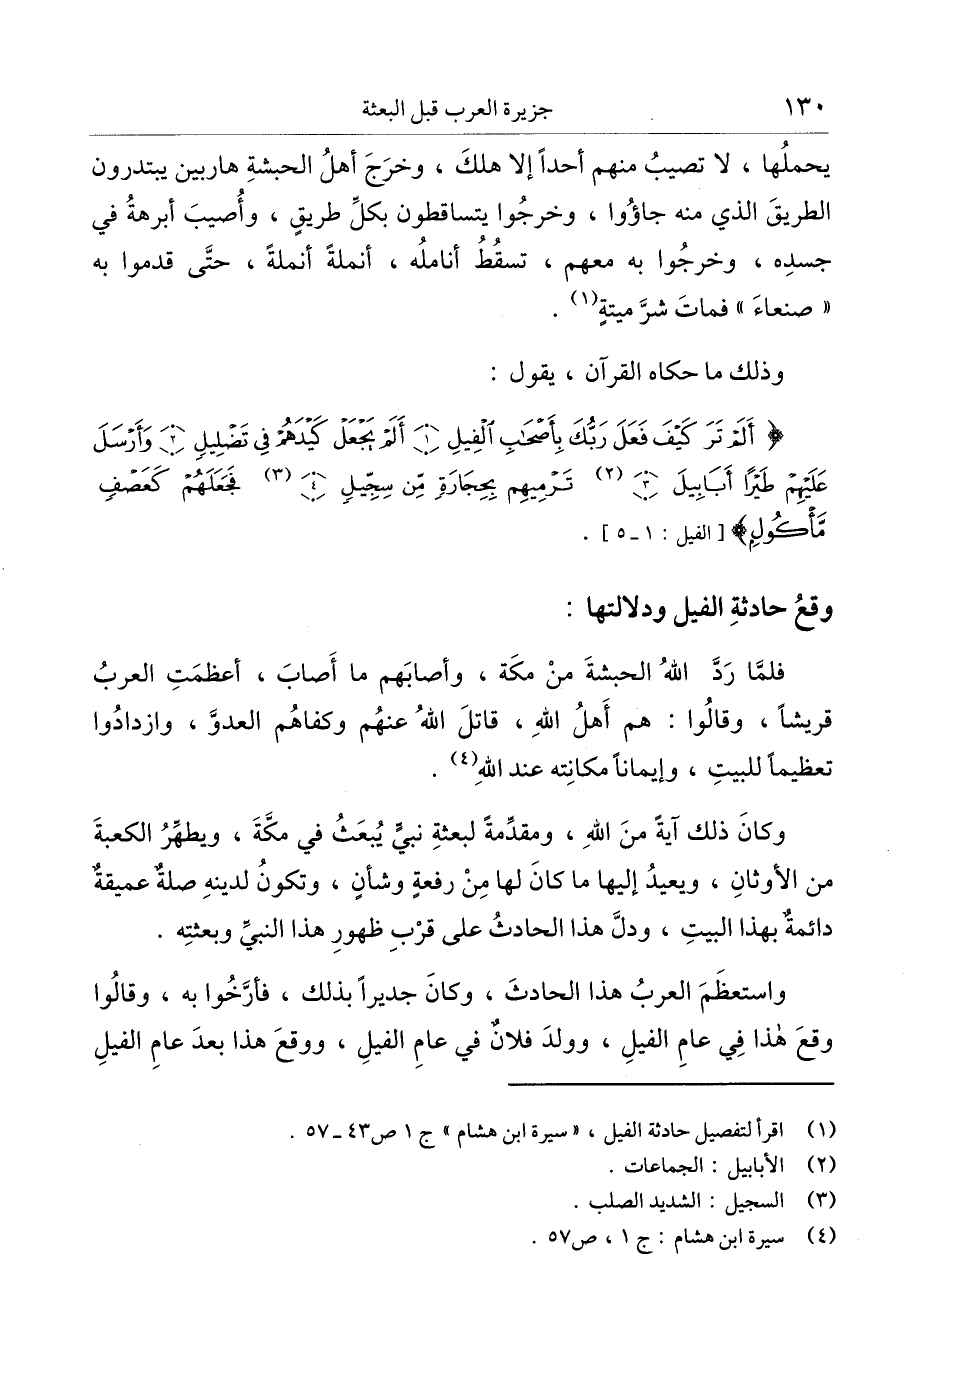 ١٣٠ جزيرة العرب قبل البعثة
يحملُها ، لا تصيبُ منهم أحداً إلا هلكَ ، وخرَجَ أهلُ الحبشةِ هاربين يبتدرون
الطريقَ الذي منه جاؤُوا ، وخرجُوا يتساقطون بكلِّ طريقٍ ، وأُصيبَ أبرهةُ في
جسدِه ، وخرجُوا به معهم ، تسقُطُ أناملُه ، أنملةً أنملةً ، حتَّى قدموا به
« صنعاءَ » فماتَ شرَّ ميتةٍ(١) .
وذلك ما حكاه القرآن ، يقول :
﴿ أَلَمْ تَرَ كَيْفَ فَعَلَ رَبُّكَ بِأَصْحَٰبِ ٱلْفِيلِ ١ أَلَمْ يَجْعَلْ كَيْدَهُمْ فِي تَضْلِيلٍ ٢ وَأَرْسَلَ
عَلَيْهِمْ طَيْرًا أَبَابِيلَ ٣ (٢) تَرْمِيهِم بِحِجَارَةٍ مِّن سِجِّيلٍ ٤ (٣) فَجَعَلَهُمْ كَعَصْفٍ
مَّأْكُولٍ﴾ [ الفيل : ١ ـ ٥ ] .
وقعُ حادثةِ الفيل ودلالتها :
فلمَّا رَدَّ اللهُ الحبشةَ منْ مكَة ، وأصابَهم ما أَصابَ ، أعظمَتِ العربُ
قريشاً ، وقالُوا : هم أَهلُ اللهِ ، قاتلَ اللهُ عنهُم وكفاهُم العدوَّ ، وازدادُوا
تعظيماً للبيتِ ، وإيماناً مكانِته عند اللهِ(٤) .
وكانَ ذلك آيةً منَ اللهِ ، ومقدِّمةً لبعثةِ نبيٍّ يُبعَثُ في مكَّةَ ، ويطهِّرُ الكعبةَ
من الأوثانِ ، ويعيدُ إليها ما كانَ لها مِنْ رفعةٍ وشأنٍ ، وتكونُ لدينهِ صلةٌ عميقةٌ
دائمةٌ بهذا البيتِ ، ودلَّ هذا الحادثُ على قرْبِ ظهورِ هذا النبيِّ وبعثتِه .
واستعظَمَ العربُ هذا الحادثَ ، وكانَ جديراً بذلك ، فأرَّخُوا به ، وقالُوا
وقعَ هٰذا فِي عامِ الفيلِ ، وولدَ فلانٌ في عامِ الفيلِ ، ووقعَ هذا بعدَ عامِ الفيلِ
(١) اقرأ لتفصيل حادثة الفيل ، « سيرة ابن هشام » ج ١ ص٤٣ ـ ٥٧ .
(٢) الأبابيل : الجماعات .
(٣) السجيل : الشديد الصلب .
(٤) سيرة ابن هشام : ج ١ ، ص٥٧ .